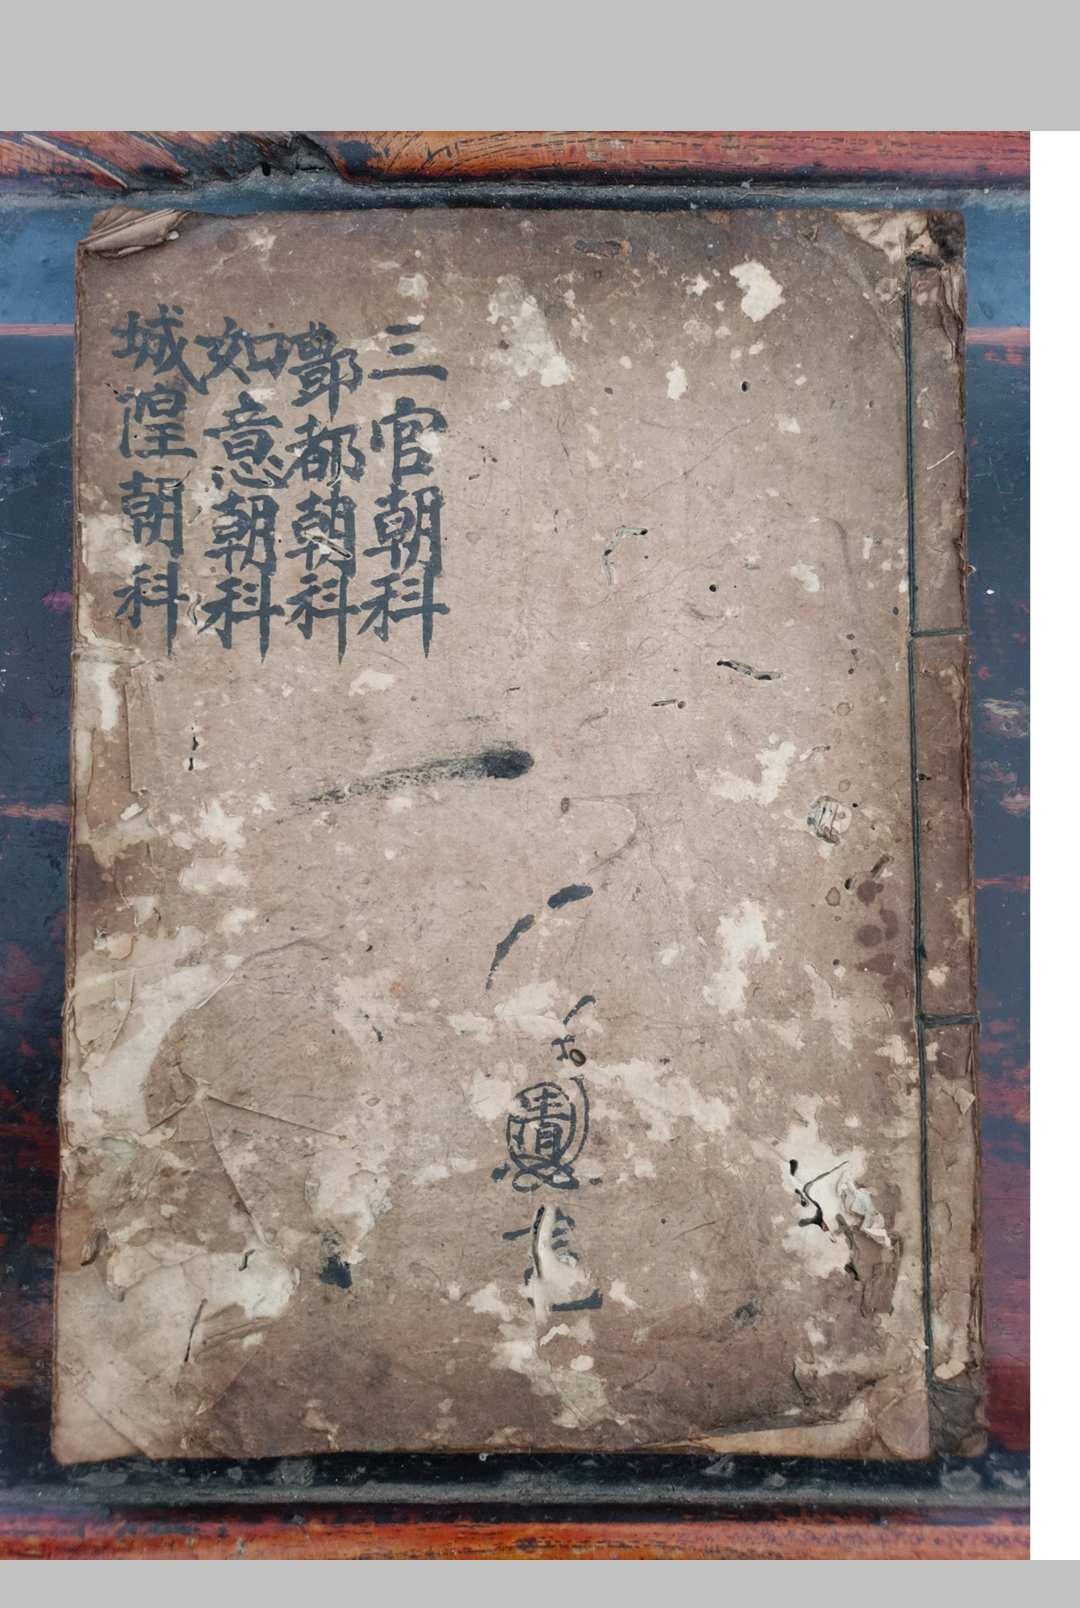 三官朝科
酆都朝科
如意朝科
城湟朝科